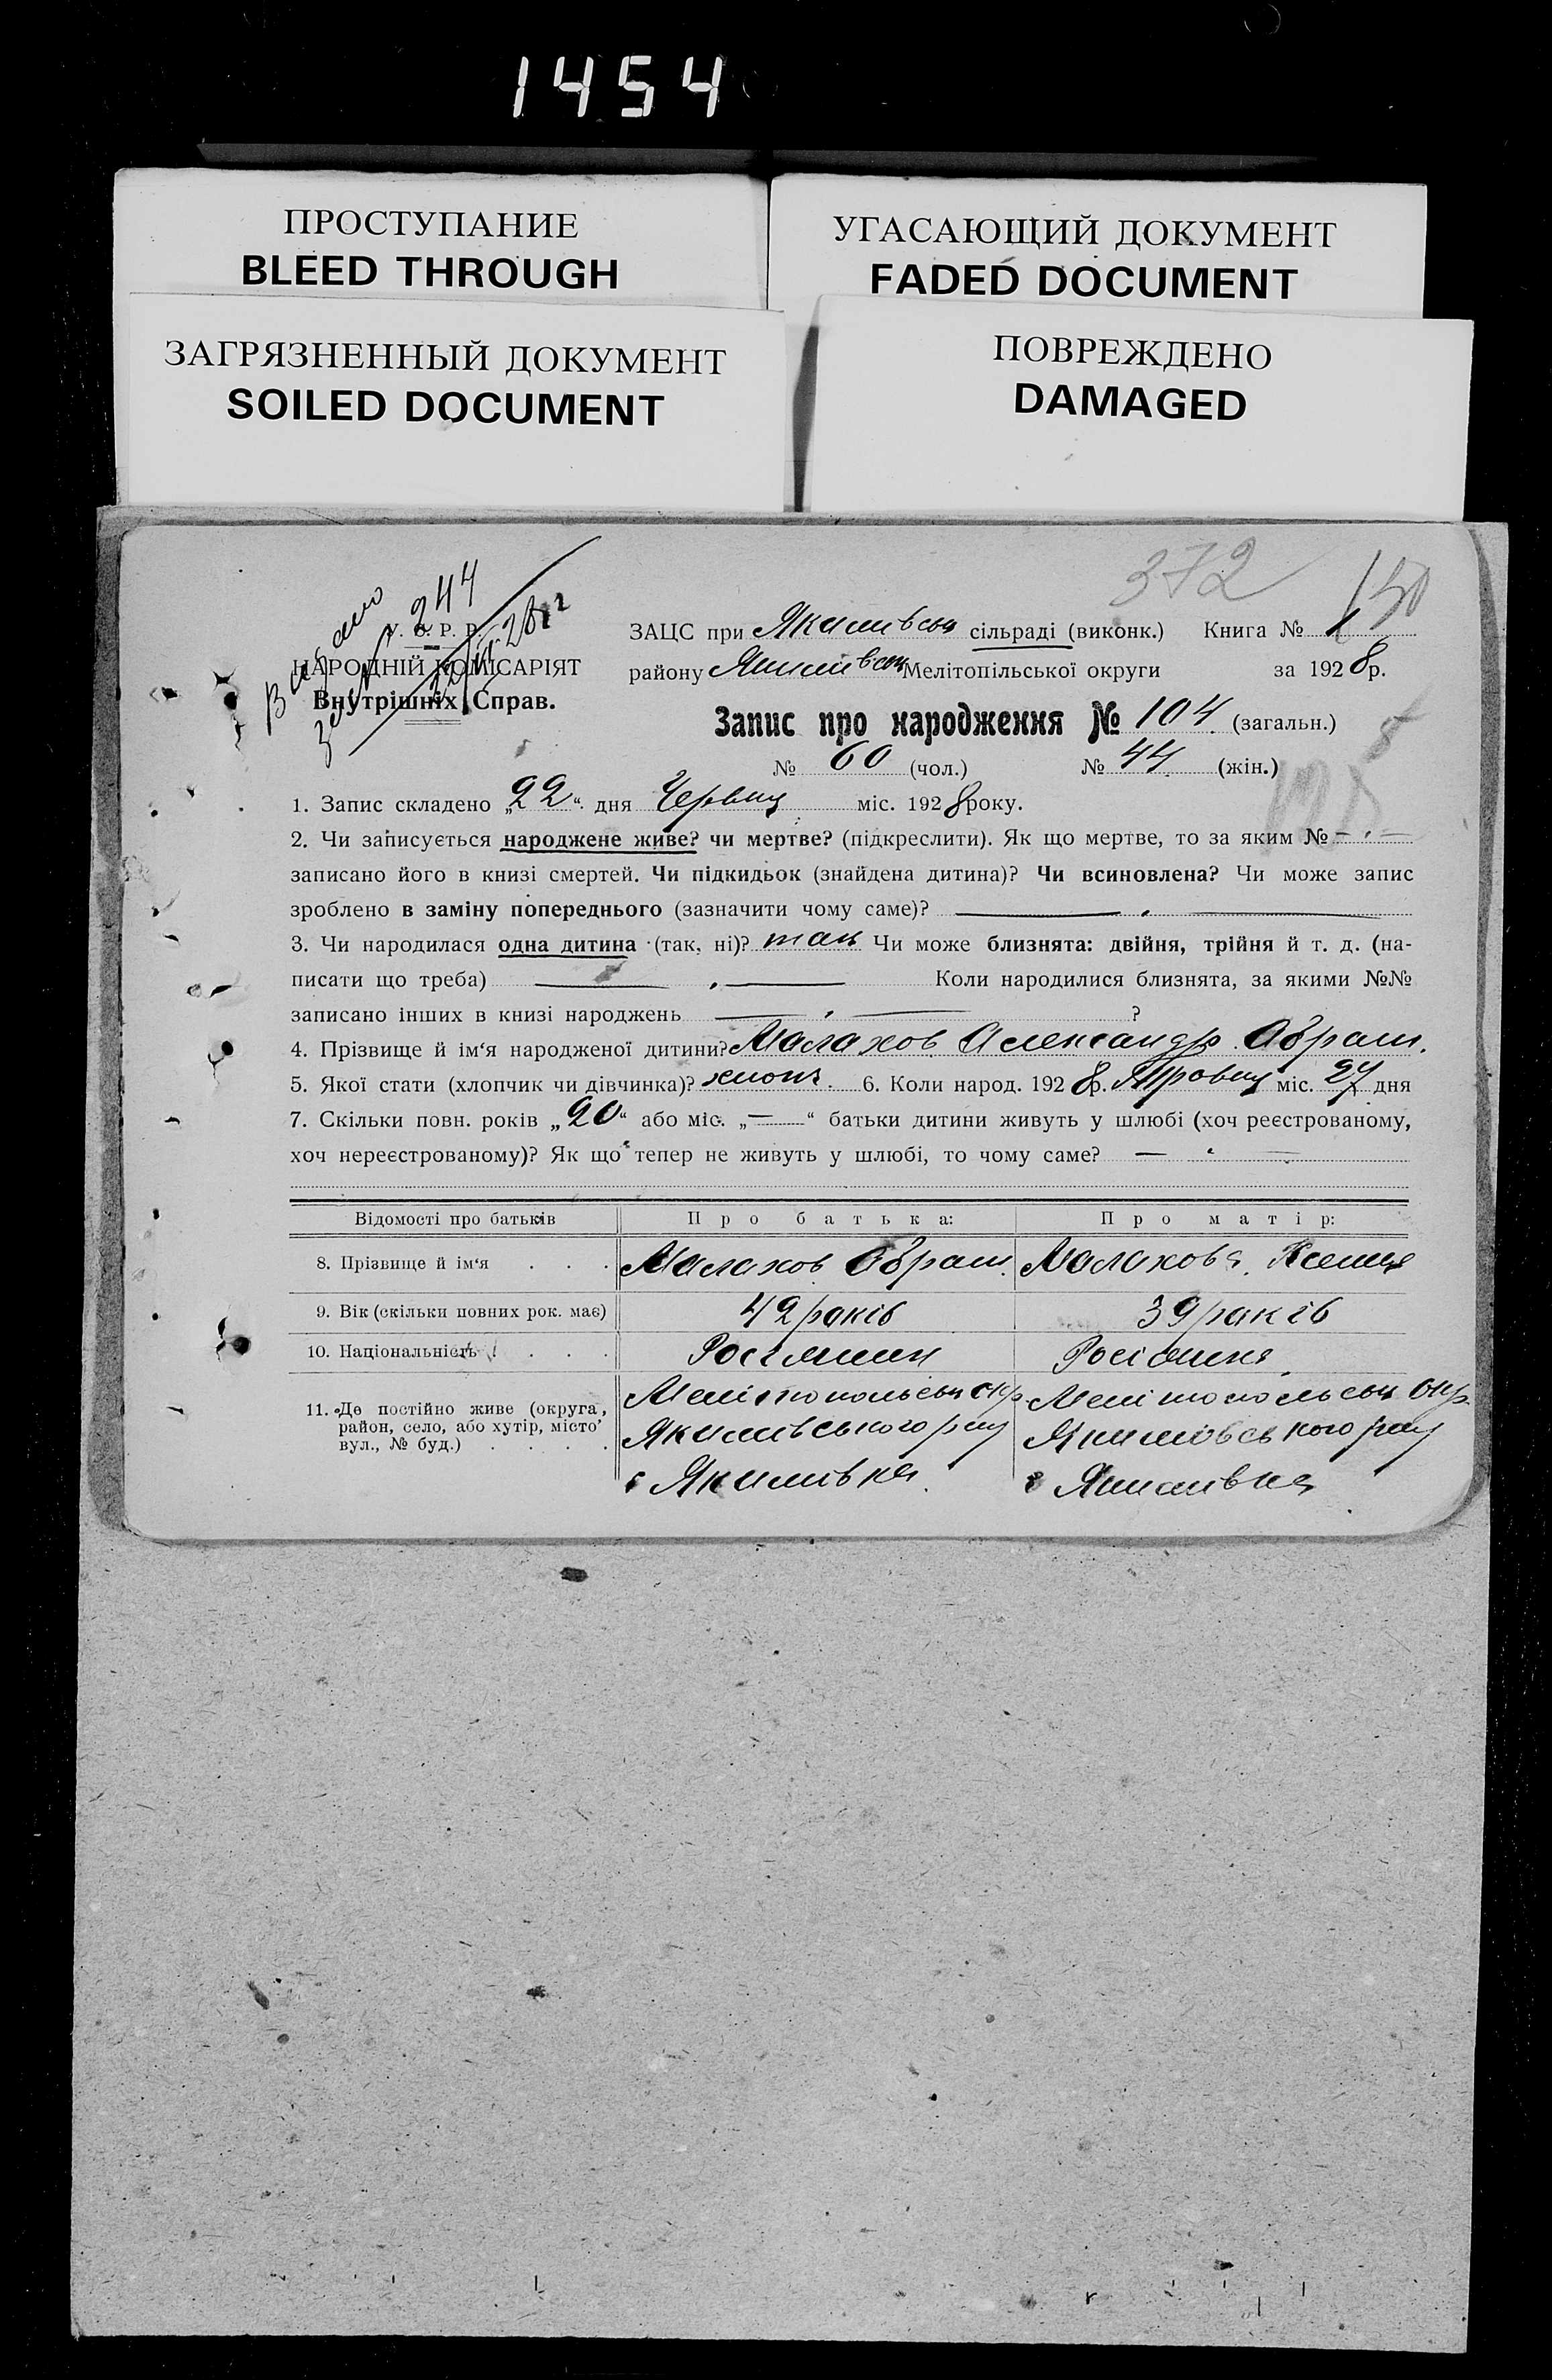 1454
ПРОСТУПАНИЕ
BLEED THROUGH
УГАСАЮЩИЙ ДОКУМЕНТ
FADED DOCUMENT
ЗАГРЯЗНЕННЫЙ ДОКУМЕНТ
SOILED DOCUMENT
ПОВРЕЖДЕНО
DAMAGED
372
150
Видано
244
У. С. Р. Р.
НАРОДНІЙ КОМІСАРІЯТ
Внутрішніх Справ.
ЗАЦС при Якимівськ сільраді (виконк.) Книга № 1
району Якимівськ Мелітопільської округи за 1928 р.
Запис про народження № 104 (загальн.)
№ 60 (чол.) № 44 (жін.)
1. Запис складено „22“ дня Червця міс. 1928 року.
2. Чи записується народжене живе? чи мертве? (підкреслити). Як що мертве, то за яким № —
записано його в книзі смертей. Чи підкидьок (знайдена дитина)? Чи всиновлена? Чи може запис
зроблено в заміну попереднього (зазначити чому саме)? —
3. Чи народилася одна дитина (так, ні)? так Чи може близнята: двійня, трійня й т. д. (на-
писати що треба) — Коли народилися близнята, за якими №№
записано інших в книзі народжень — ?
4. Прізвище й ім‘я народженої дитини? Малахов Александр Абрам.
5. Якої стати (хлопчик чи дівчинка)? хлопч. 6. Коли народ. 1928 р. міс. 27 дня
7. Скільки повн. років „20“ або міс. „—“ батьки дитини живуть у шлюбі (хоч реєстрованому,
хоч нереєстрованому)? Як що тепер не живуть у шлюбі, то чому саме? —
Відомості про батьків Про батька: Про матір:
8. Прізвище й ім‘я . . . Малахов Абрам. Малахова Ксенія
9. Вік (скільки повних рок. має) 42 років 39 років
10. Національність . . . Росіянин Росіянка
11. Де постійно живе (округа, район, село, або хутір, місто’ вул., № буд.) . . . .
Мелітопольськ окр. Мелітопольськ окр.
Якимівського рай Якимівського рай
с Якимівка. с Якимівка